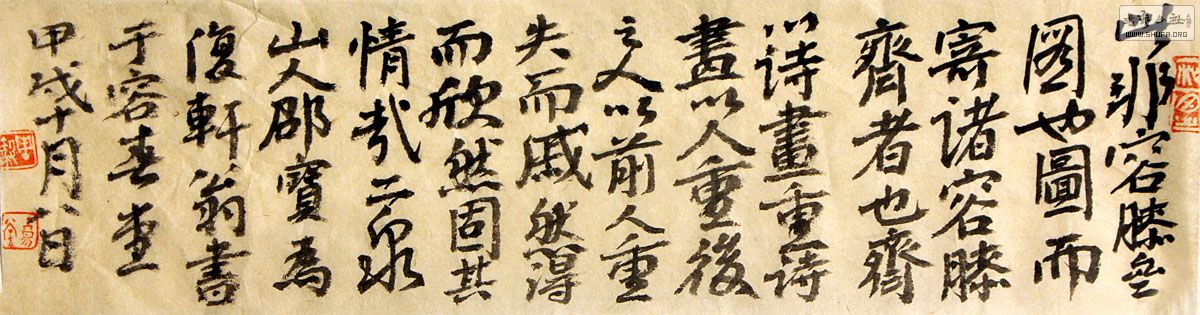 此非容膝岳
图也圖而
寄诸容膝
齊者也齊
以詩畫重詩
畫以人重後
之人以前人重
失而戚然得
而欣然固其
情哉二泉
山人邵寶為
復軒翁書
于容春堂
甲戌十月八日
WWW.SHUFA.ORG